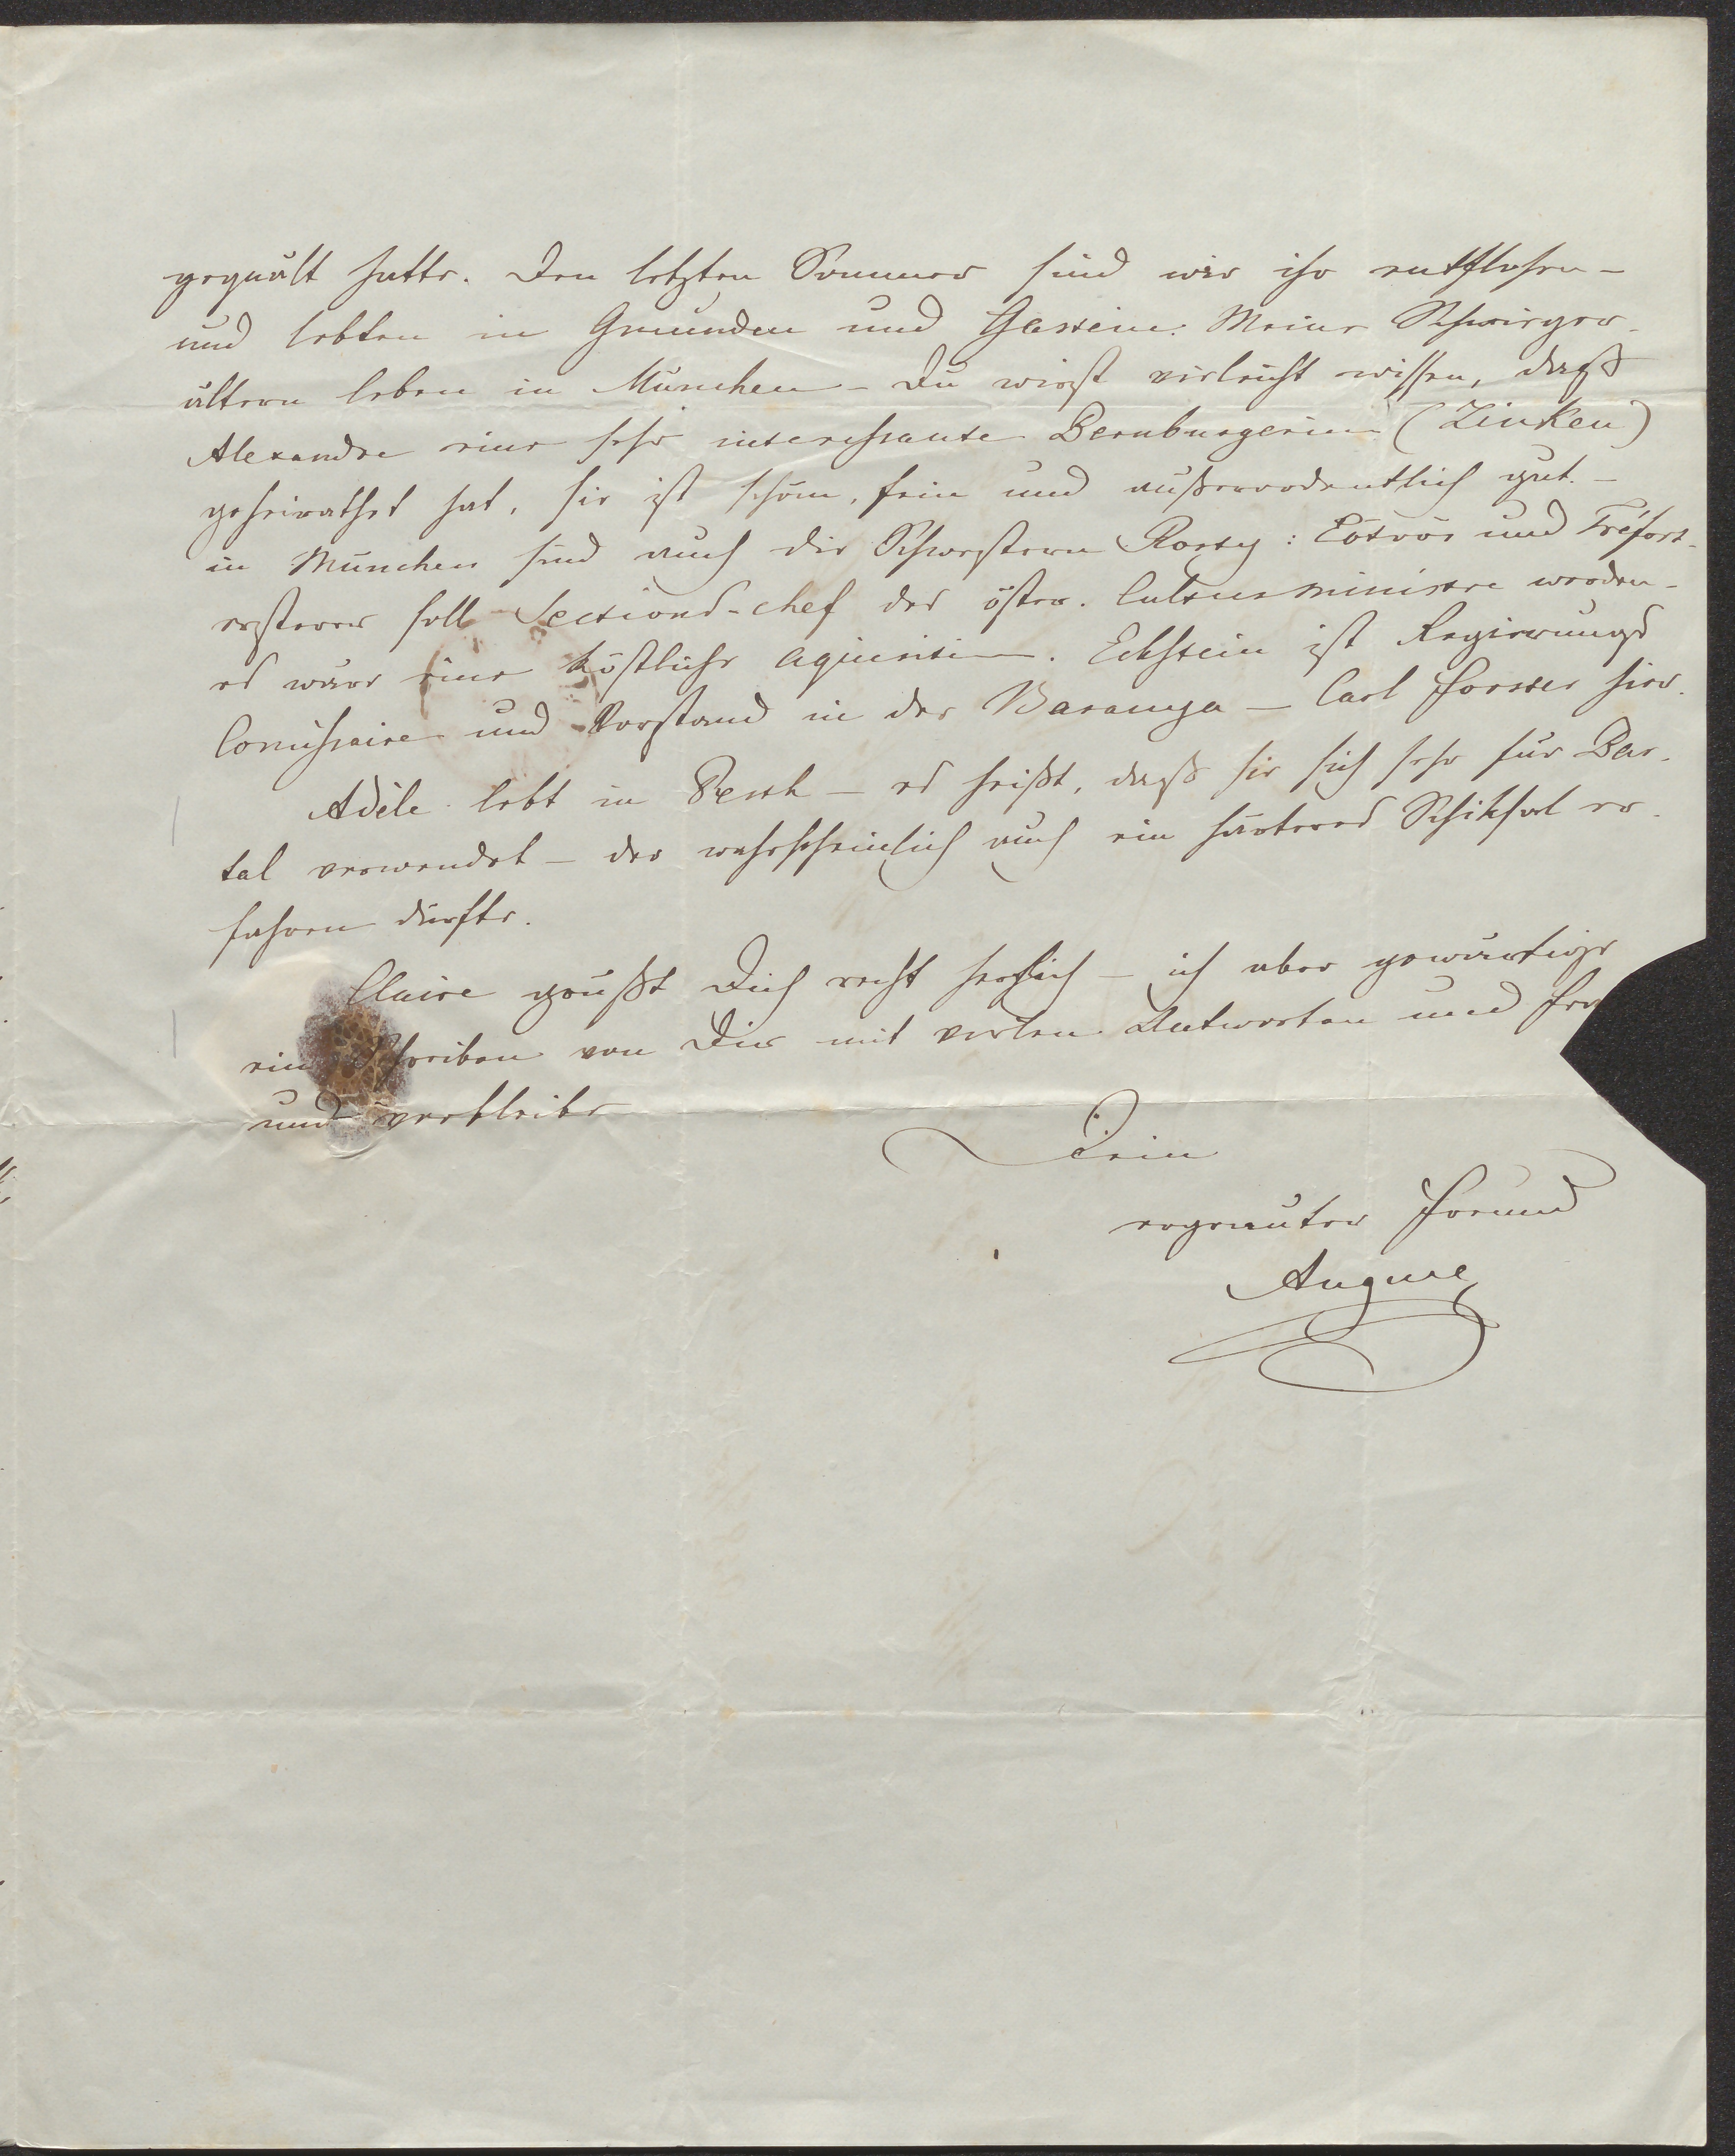 gequält hatte. Den letzten Sommer sind wir ihr entflohen –
und lebten in Gmunden und Gastein. Meine Schwieger-
ältern leben in München – Du wirst vieleicht wissen, daß
Alexandre eine sehr interessante Bernburgerin (Zinken)
geheirathet hat, sie ist schön, fein und außerordentlich gut. –
in München sind auch die Schwestern Rosty: Eötvös und Tréfort.
ersterer soll Sections-chef des öster. Cultusministre werden –
es wäre eine köstliche Aquisition. Eckstein ist Regierungs
Comissaire und Vorstand in der Baranya – Carl Forster hier.
Adèle lebt in Pesth – es heißt, daß sie sich sehr für Bar-
tal verwendet – der wahrscheinlich auch ein härteres Schiksal er-
fahren dürfte.
Claire grüßt Dich recht herzlich – ich aber gewärtige
ein Schreiben von Dir mit vielen Antworten und
und verbleibe
Dein
ergebenster Freund
August